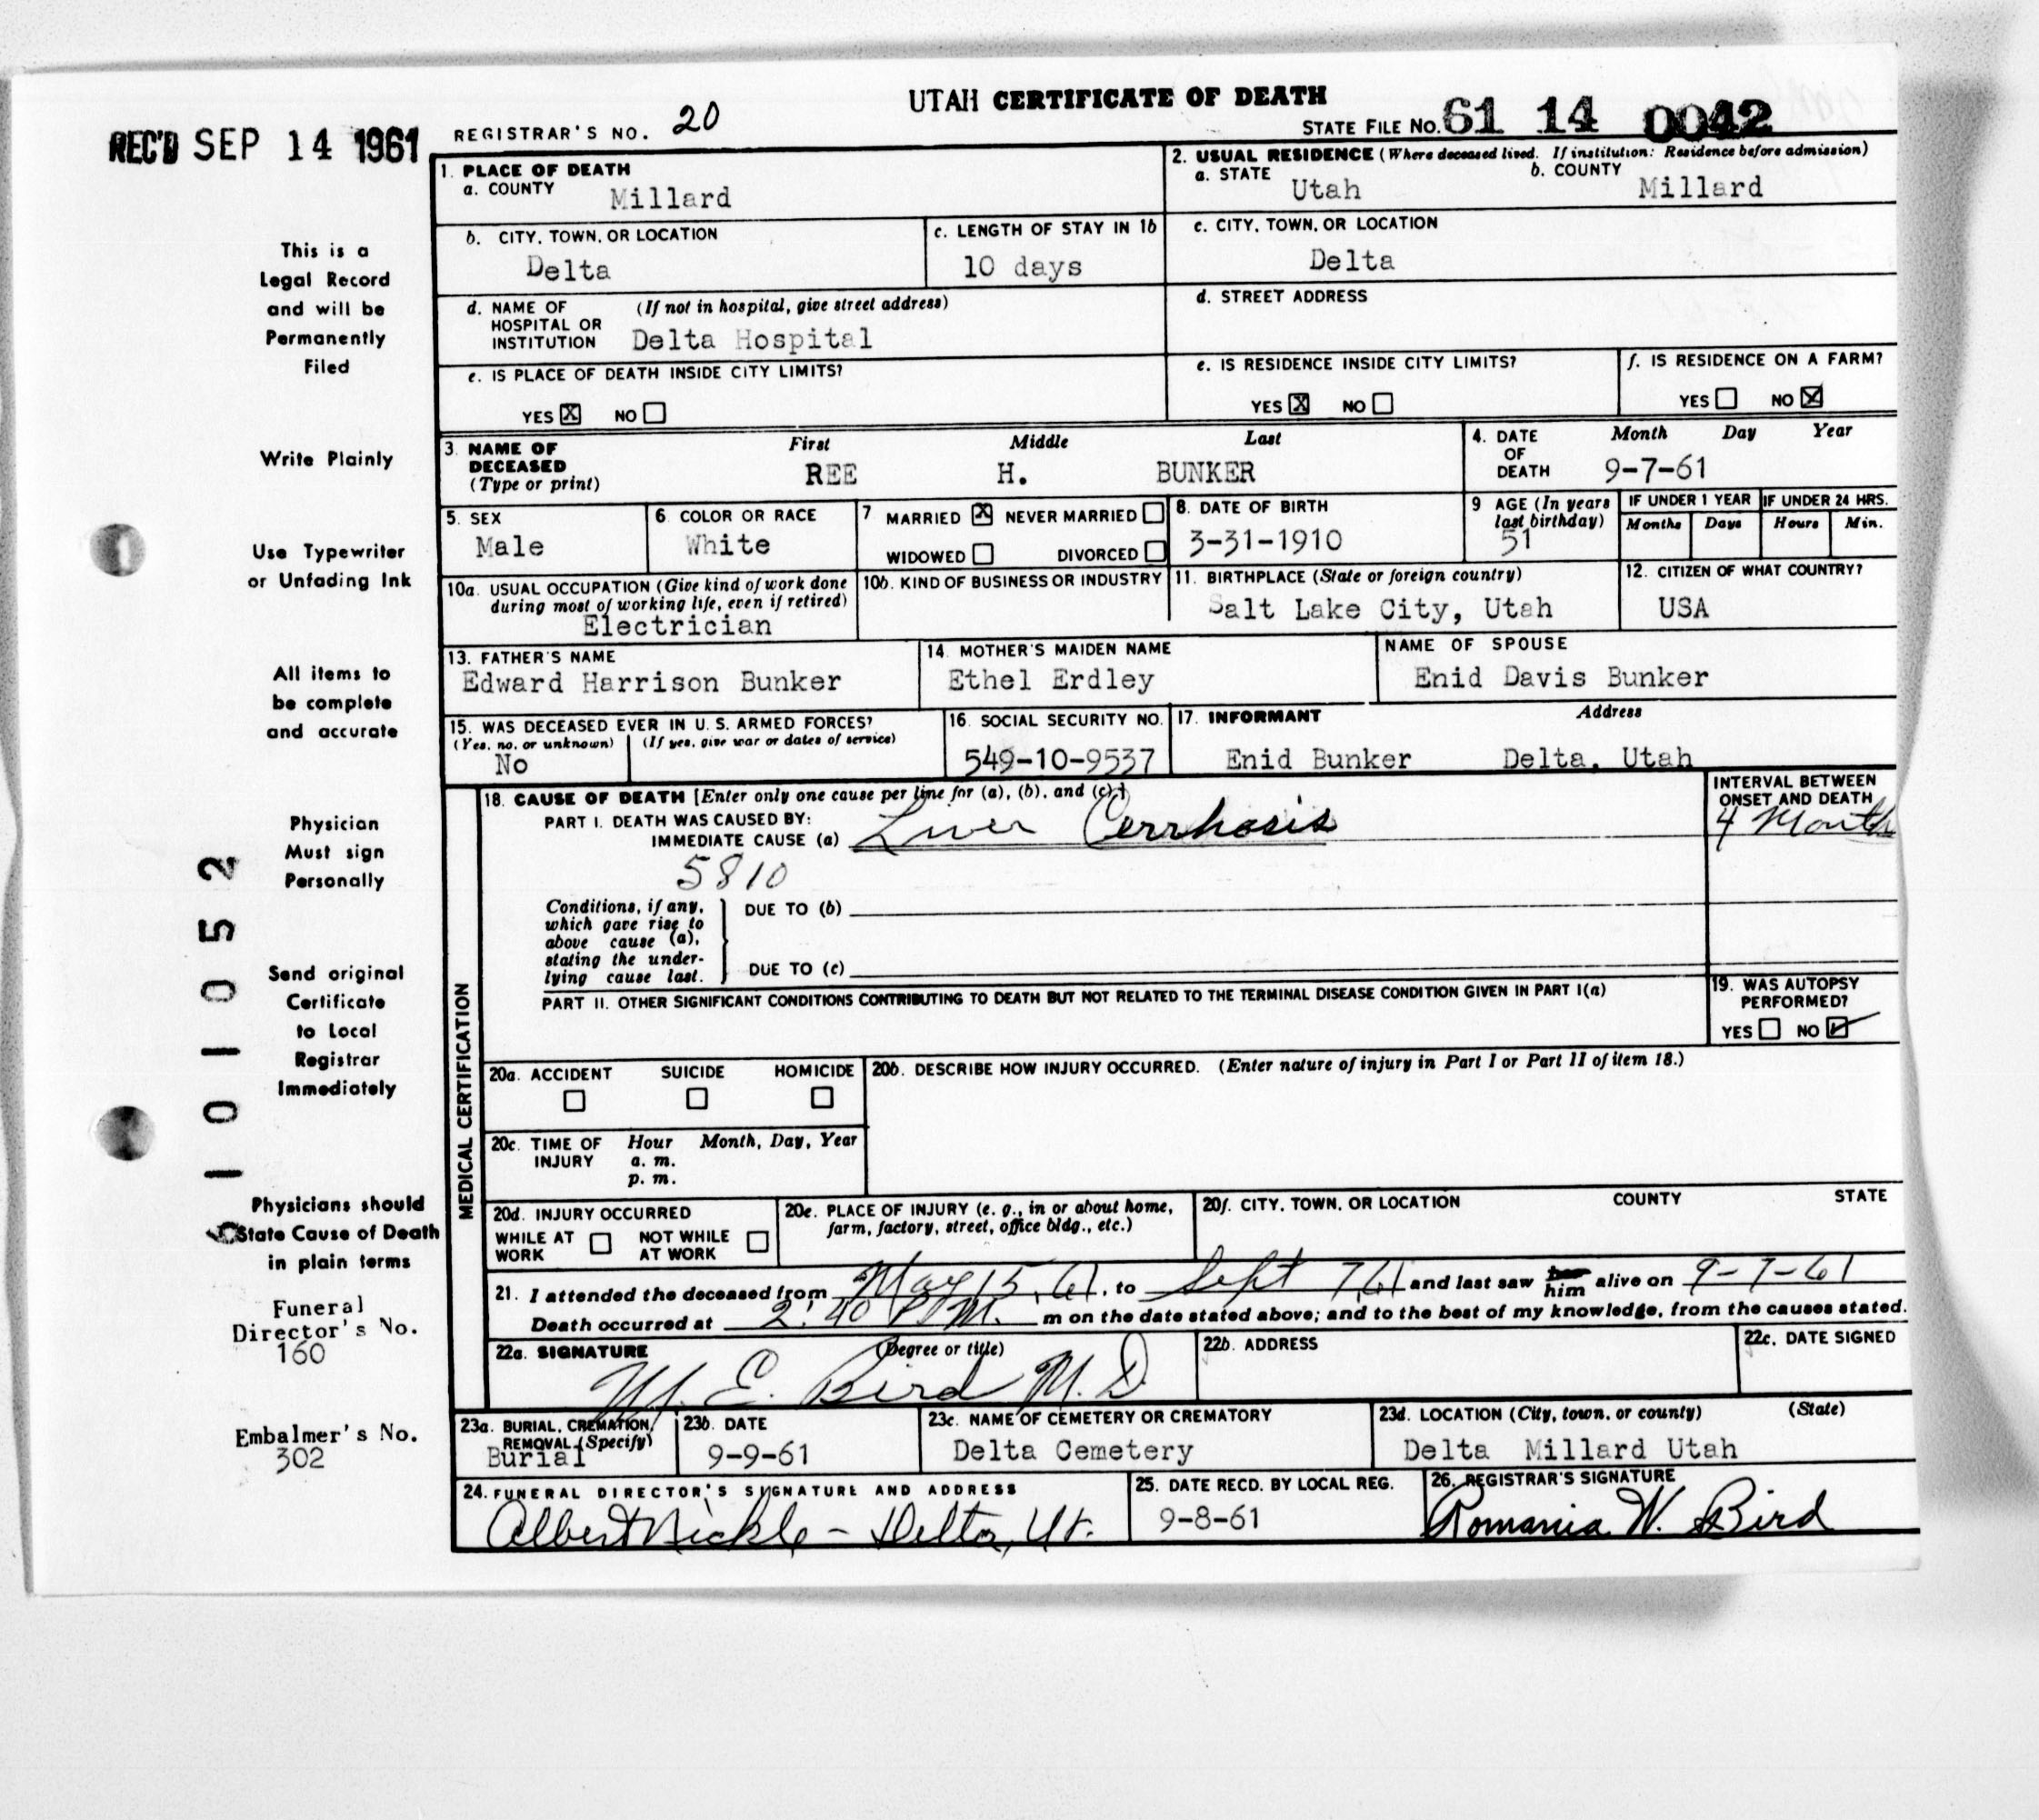 UTAH CERTIFICATE OF DEATH
REC'D SEP 14 1961
REGISTRAR'S NO. 20
STATE FILE No. 61 14 0042
This is a
Legal Record
and will be
Permanently
Filed
Write Plainly
Use Typewriter
or Unfading Ink
All items to
be complete
and accurate
Physician
Must sign
Personally
Send original
Certificate
to Local
Registrar
Immediately
Physicians should
State Cause of Death
in plain terms
Funeral
Director's No.
160
Embalmer's No.
302
1. PLACE OF DEATH
a. COUNTY Millard
2. USUAL RESIDENCE (Where deceased lived. If institution: Residence before admission)
a. STATE Utah b. COUNTY Millard
b. CITY, TOWN, OR LOCATION
Delta
c. LENGTH OF STAY IN 1b
10 days
c. CITY, TOWN, OR LOCATION
Delta
d. NAME OF HOSPITAL OR INSTITUTION (If not in hospital, give street address)
Delta Hospital
d. STREET ADDRESS
e. IS PLACE OF DEATH INSIDE CITY LIMITS?
YES X NO
e. IS RESIDENCE INSIDE CITY LIMITS?
YES X NO
f. IS RESIDENCE ON A FARM?
YES NO X
3. NAME OF DECEASED (Type or print)
First Middle Last
REE H. BUNKER
4. DATE OF DEATH Month Day Year
9-7-61
5. SEX
Male
6. COLOR OR RACE
White
7 MARRIED X NEVER MARRIED
WIDOWED DIVORCED
8. DATE OF BIRTH
3-31-1910
9 AGE (In years last birthday)
51
IF UNDER 1 YEAR
Months Days
IF UNDER 24 HRS.
Hours Min.
10a. USUAL OCCUPATION (Give kind of work done
during most of working life, even if retired)
Electrician
10b. KIND OF BUSINESS OR INDUSTRY
11. BIRTHPLACE (State or foreign country)
Salt Lake City, Utah
12. CITIZEN OF WHAT COUNTRY?
USA
13. FATHER'S NAME
Edward Harrison Bunker
14. MOTHER'S MAIDEN NAME
Ethel Erdley
NAME OF SPOUSE
Enid Davis Bunker
15. WAS DECEASED EVER IN U. S. ARMED FORCES?
(Yes, no, or unknown) (If yes, give war or dates of service)
No
16. SOCIAL SECURITY NO.
549-10-9537
17. INFORMANT Address
Enid Bunker Delta, Utah
MEDICAL CERTIFICATION
18. CAUSE OF DEATH [Enter only one cause per line for (a), (b), and (c).]
PART I. DEATH WAS CAUSED BY:
IMMEDIATE CAUSE (a) Liver Cerrhosis
5810
INTERVAL BETWEEN
ONSET AND DEATH
4 Month
Conditions, if any,
which gave rise to
above cause (a),
stating the under-
lying cause last.
DUE TO (b)
DUE TO (c)
PART II. OTHER SIGNIFICANT CONDITIONS CONTRIBUTING TO DEATH BUT NOT RELATED TO THE TERMINAL DISEASE CONDITION GIVEN IN PART I(a)
19. WAS AUTOPSY
PERFORMED?
YES NO
20a. ACCIDENT SUICIDE HOMICIDE
20b. DESCRIBE HOW INJURY OCCURRED. (Enter nature of injury in Part I or Part II of item 18.)
20c. TIME OF INJURY Hour Month, Day, Year
a. m.
p. m.
20d. INJURY OCCURRED
WHILE AT WORK NOT WHILE AT WORK
20e. PLACE OF INJURY (e. g., in or about home,
farm, factory, street, office bldg., etc.)
20f. CITY, TOWN, OR LOCATION COUNTY STATE
21. I attended the deceased from May 15, 61, to Sept 7, 61 and last saw her him alive on 9-7-61
Death occurred at 2:40 P.M. m on the date stated above; and to the best of my knowledge, from the causes stated.
22a. SIGNATURE (Degree or title)
M. E. Bird M. D.
22b. ADDRESS
22c. DATE SIGNED
23a. BURIAL, CREMATION,
REMOVAL (Specify)
Burial
23b. DATE
9-9-61
23c. NAME OF CEMETERY OR CREMATORY
Delta Cemetery
23d. LOCATION (City, town, or county) (State)
Delta Millard Utah
24. FUNERAL DIRECTOR'S SIGNATURE AND ADDRESS
Albert Nickle - Delta, Ut.
25. DATE RECD. BY LOCAL REG.
9-8-61
26. REGISTRAR'S SIGNATURE
Romania W. Bird